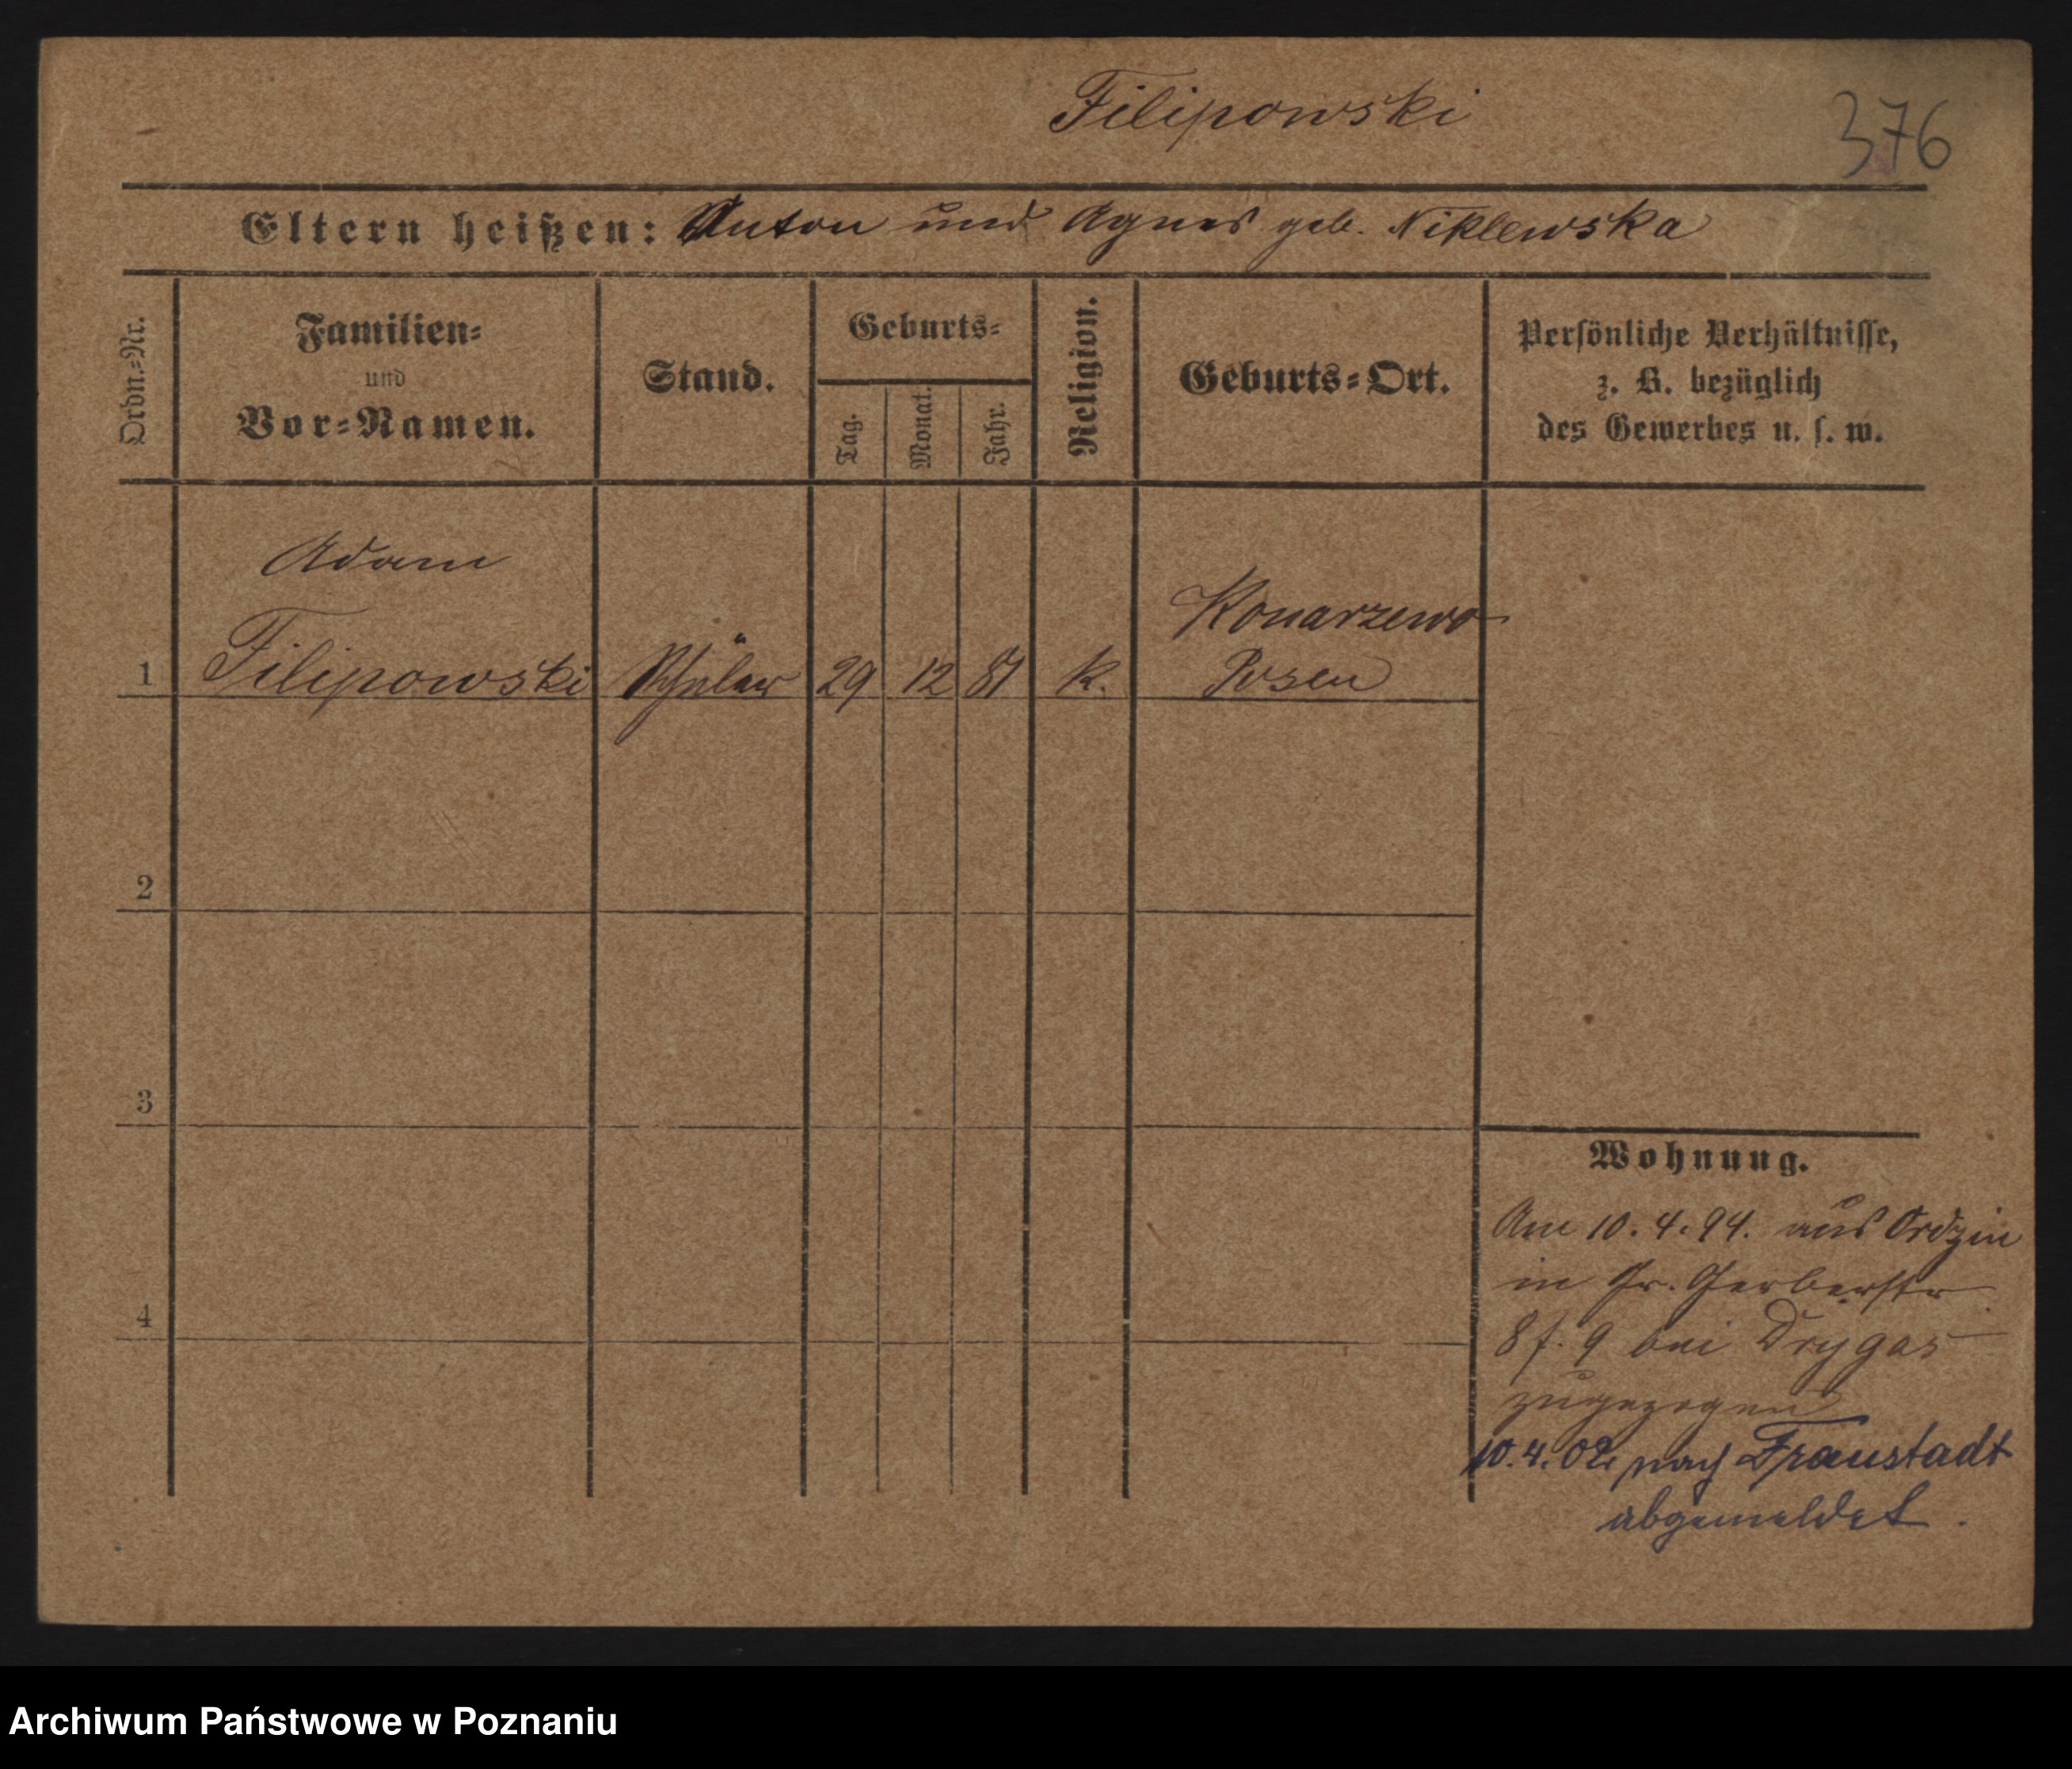 Filipowski
376
Eltern heißen: Anton und Agnes geb. Niklewska
Ordn.-Nr.
Familien-
und
Vor-Namen.
Stand.
Geburts-
Tag.
Monat.
Jahr.
Religion.
Geburts-Ort.
Persönliche Verhältnisse,
z. B. bezüglich
des Gewerbes u. s. w.
Adam
1 Filipowski Schüler 29 12 81 k. Konarzewo
Posen
2
3
4
Wohnung.
Am 10.4.94. aus Ordzin
in Gr. Gerberstr
8 f. 9 bei Drygas
zugezogen
10.4.02. nach Fraustadt
abgemeldet.
Archiwum Państwowe w Poznaniu